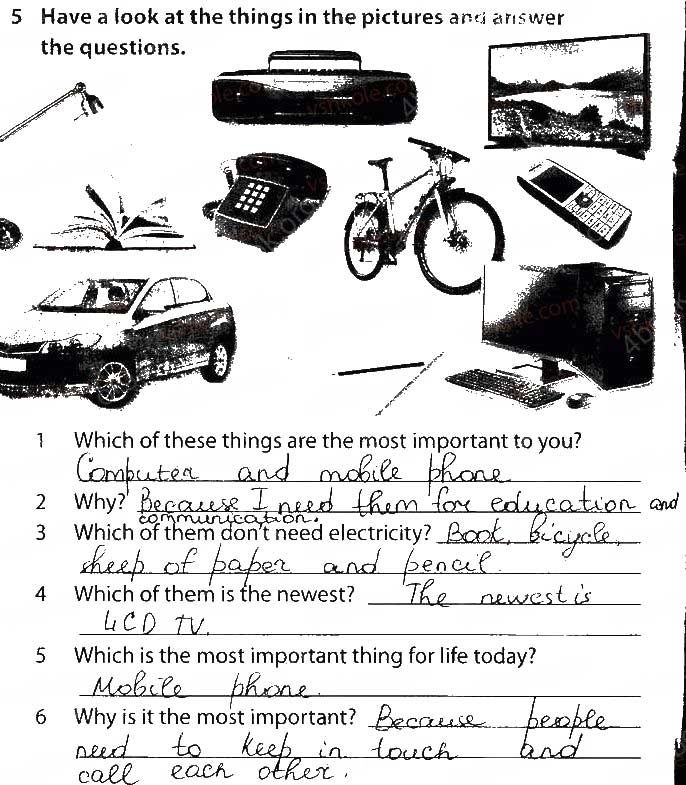 5 Have a look at the things in the pictures and answer
the questions.
1 Which of these things are the most important to you?
Computer and mobile phone
2 Why? Because I need them for education and
communication.
3 Which of them don't need electricity? Book, bicycle,
sheep of paper and pencil.
4 Which of them is the newest? The newest is
LCD TV.
5 Which is the most important thing for life today?
Mobile phone.
6 Why is it the most important? Because people
need to keep in touch and
call each other.